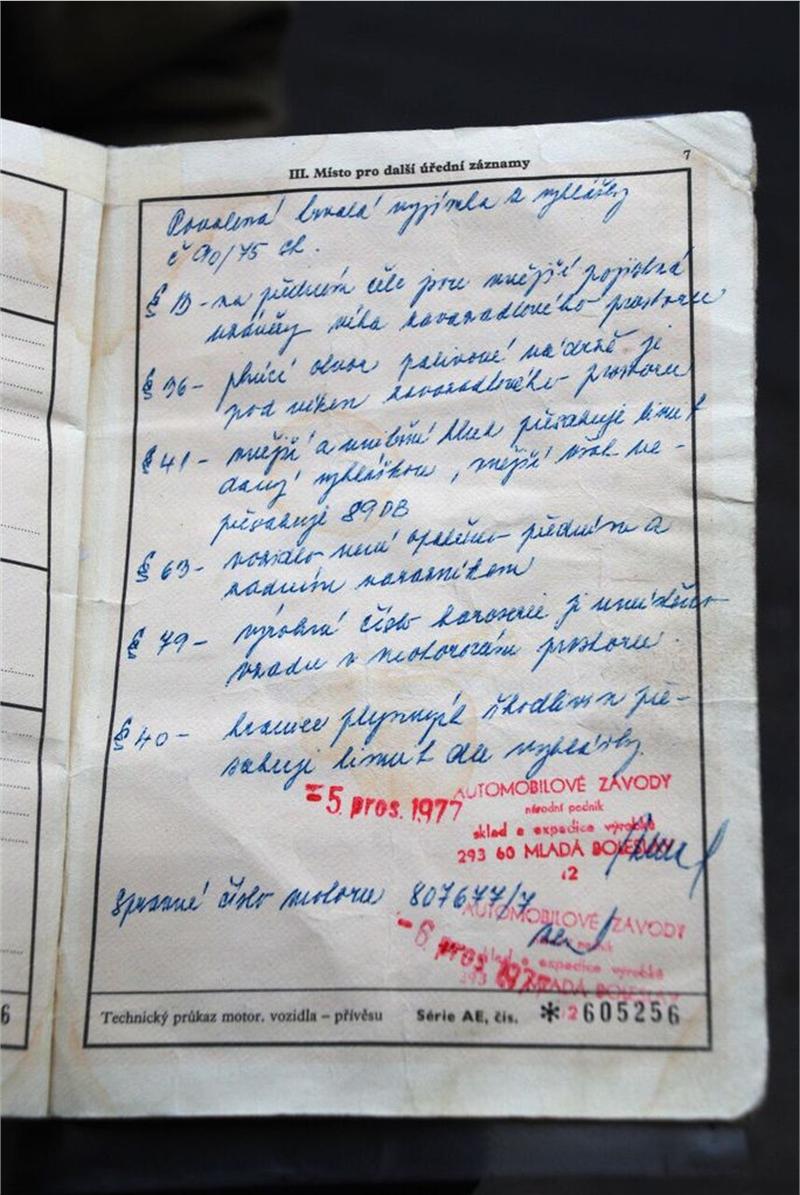 III. Místo pro další úřední záznamy
7
Povolená trvalá vyjímka z vyhlášky
č 90/75 ch.
§ 19 - na předním čele jsou vnější pojistná
uzávěry víka zavazadlového prostoru
§ 36 - plnící otvor palivové nádrže je
pod víkem zavazadlového prostoru
§ 41 - vnější a vnitřní hluk přesahuje limit
daný vyhláškou, vnější však ne-
přesahuje 89DB
§ 63 - vozidlo není opatřeno předním a
zadním nárazníkem
§ 79 - výrobní číslo karoserie je umístěno
vzadu v motorovém prostoru.
§ 40 - hranice plynných škodlivin pře-
sahuje limit dle vyhlášky.
- 5. pros. 1977
AUTOMOBILOVÉ ZÁVODY
národní podnik
sklad a expedice výrobků
293 60 MLADÁ BOLESLAV
12
Správné číslo motoru 807677/7
AUTOMOBILOVÉ ZÁVODY
národní podnik
- 6. pros. 1977
sklad a expedice výrobků
293 60 MLADÁ BOLESLAV
12
6
Technický průkaz motor. vozidla – přívěsu Série AE, čís. * 605256